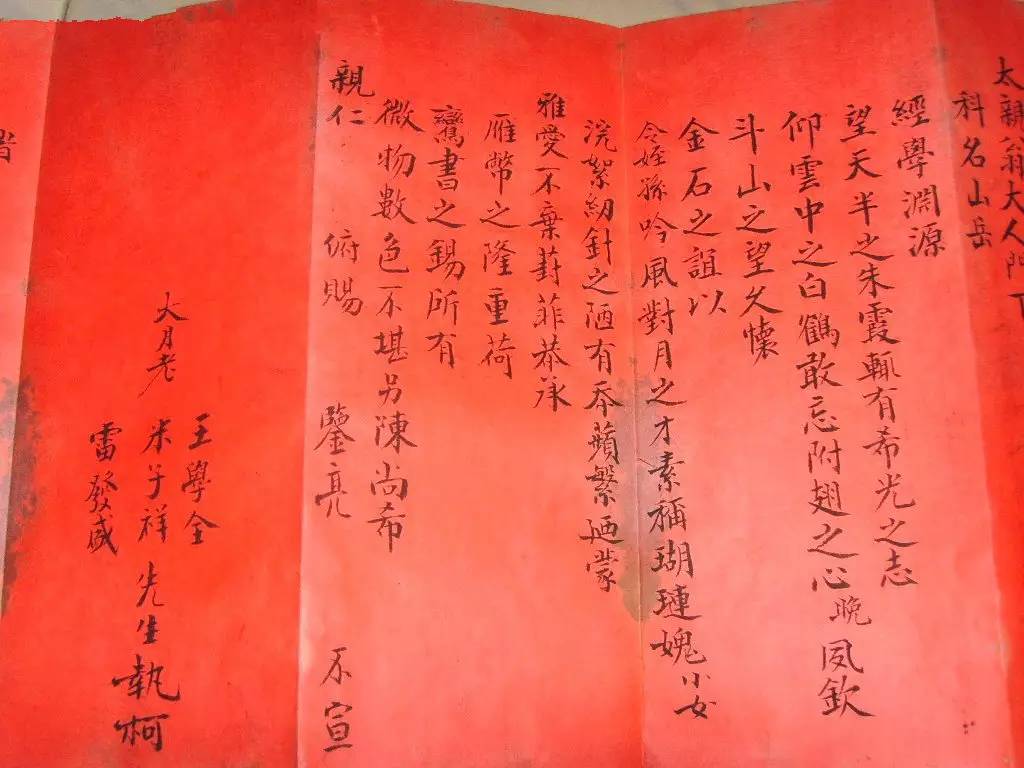 太親翁大人門下
科名山岳
經學淵源
望天半之朱霞輒有希光之志
仰雲中之白鶴敢忘附翅之心晚夙欽
斗山之望久懷
金石之誼以
令姪孫吟風對月之才素稱瑚璉媿小女
浣絮紉針之陋有忝蘋繁迺蒙
雅愛不棄葑菲恭承
雁幣之隆重荷
鸞書之錫所有
微物數色不堪另陳尚希
親仁 俯賜 鑒亮 不宣
大月老
王學全
米子祥 先生執柯
雷發盛